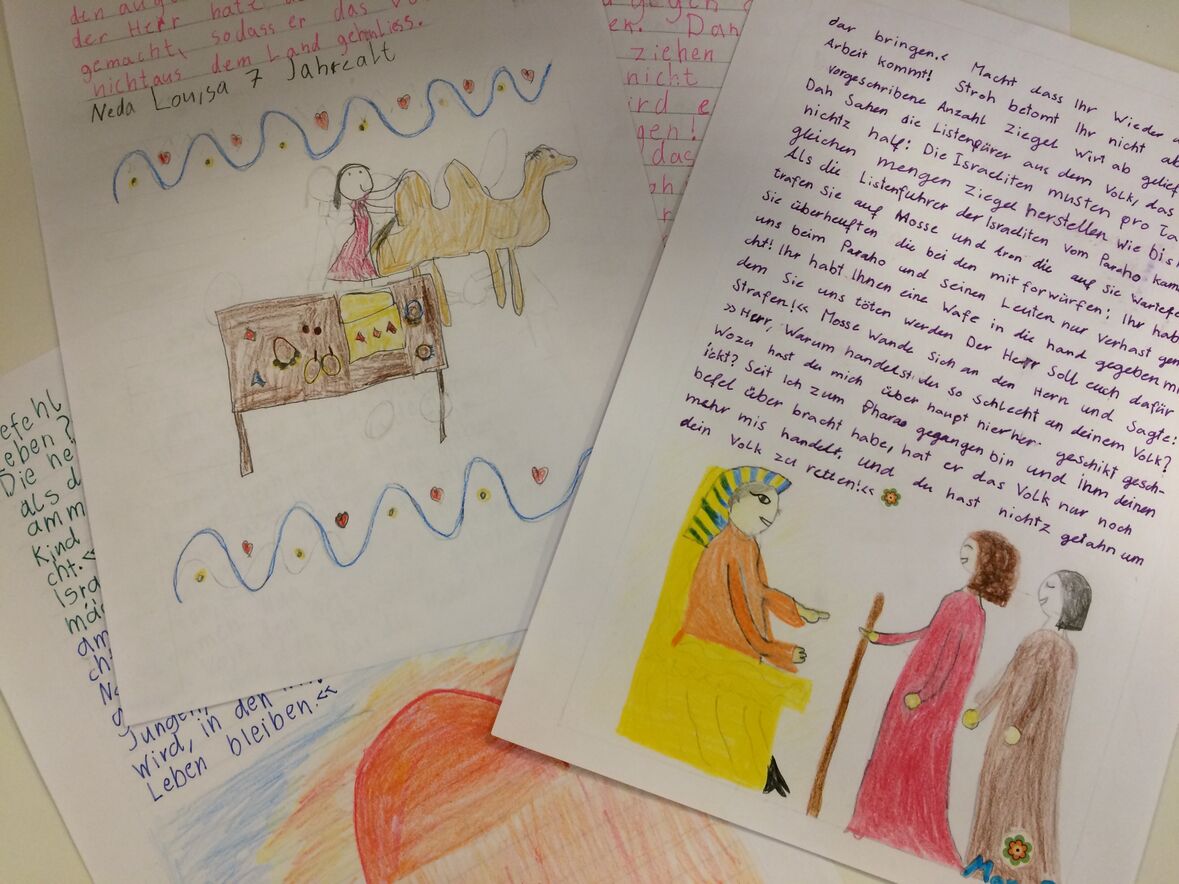 den
der Herr hatte
gemacht, sodass er das
nicht aus dem Land gehnliess.
Neda Louisa 7 Jahrealt
gegen
Dan
ziehen
nicht
ird e
gen!
das
dar bringen.< Macht dass Ihr Wieder
Arbeit kommt! Stroh betomt Ihr nicht ab
vorgeschribene Anzahl Ziegel wirt ab gelief
Dah Sahen die Listenfürer aus dem Volk, das
nichtz half: Die Israeliten musten pro Ta
gleichen mengen Ziegel herstellen wie bis
Als die Listenführer der Israeliten vom Paraho kam
trafen Sie auf Mosse und Aron die auf sie Wartete
Sie überheuften die bei den mit forwürfen: Ihr hab
uns beim Paraho und seinen Leuten nur verhast gem
cht! Ihr habt Ihnen eine Wafe in die hand gegeben mi
dem Sie uns töten werden Der Herr Soll euch dafür
Strafen!« Mosse Wande Sich an den Hern und Sagte:
»Herr, Warum handelst du so Schlecht an deinem Volk?
Wozu hast du mich über haupt hierher geschikt gesch-
ickt? Seit ich zum Pharao gegangen bin und ihm deinen
befel über bracht habe, hat er das Volk nur noch
mehr mis handelt, und du hast nichtz getahn um
dein Volk zu retten!«
efehl
Leben?
Die he
als d
amm
Kind
cht.«
Isra
mäd
am
ch
Jungen,
wird, in den
Leben bleiben.«